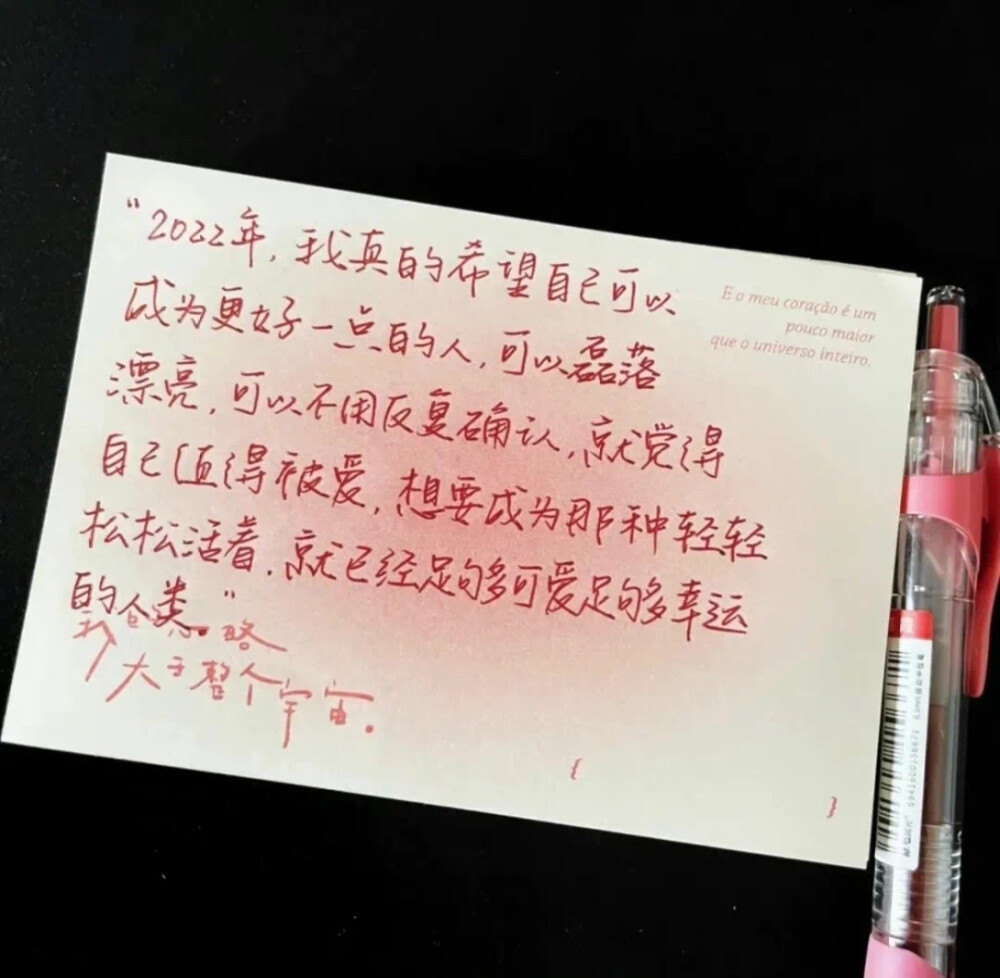 “2022年,我真的希望自己可以
成为更好一点的人,可以磊落
漂亮,可以不用反复确认,就觉得
自己值得被爱,想要成为那种轻轻
松松活着,就已经足够多可爱足够多幸运
的人类。”
我的心略
大于整个宇宙.
E o meu coração é um
pouco maior
que o universo inteiro.
{ }